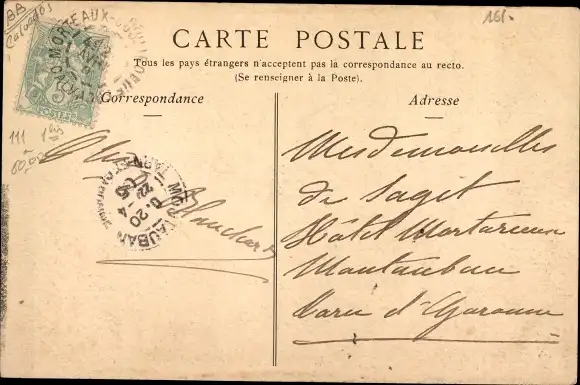 BB
Calvados
161.
CARTE POSTALE
Tous les pays étrangers n'acceptent pas la correspondance au recto.
(Se renseigner à la Poste).
Correspondance
Adresse
MORTEAUX-COULIBOEUF
CALVADOS
POSTES
111
MONTAUBAN
TARN-ET-GARONNE
22-4
Blanchard
Mesdemoiselles
de Saget
Hôtel Mortarieu
Montauban
Tarn et Garonne